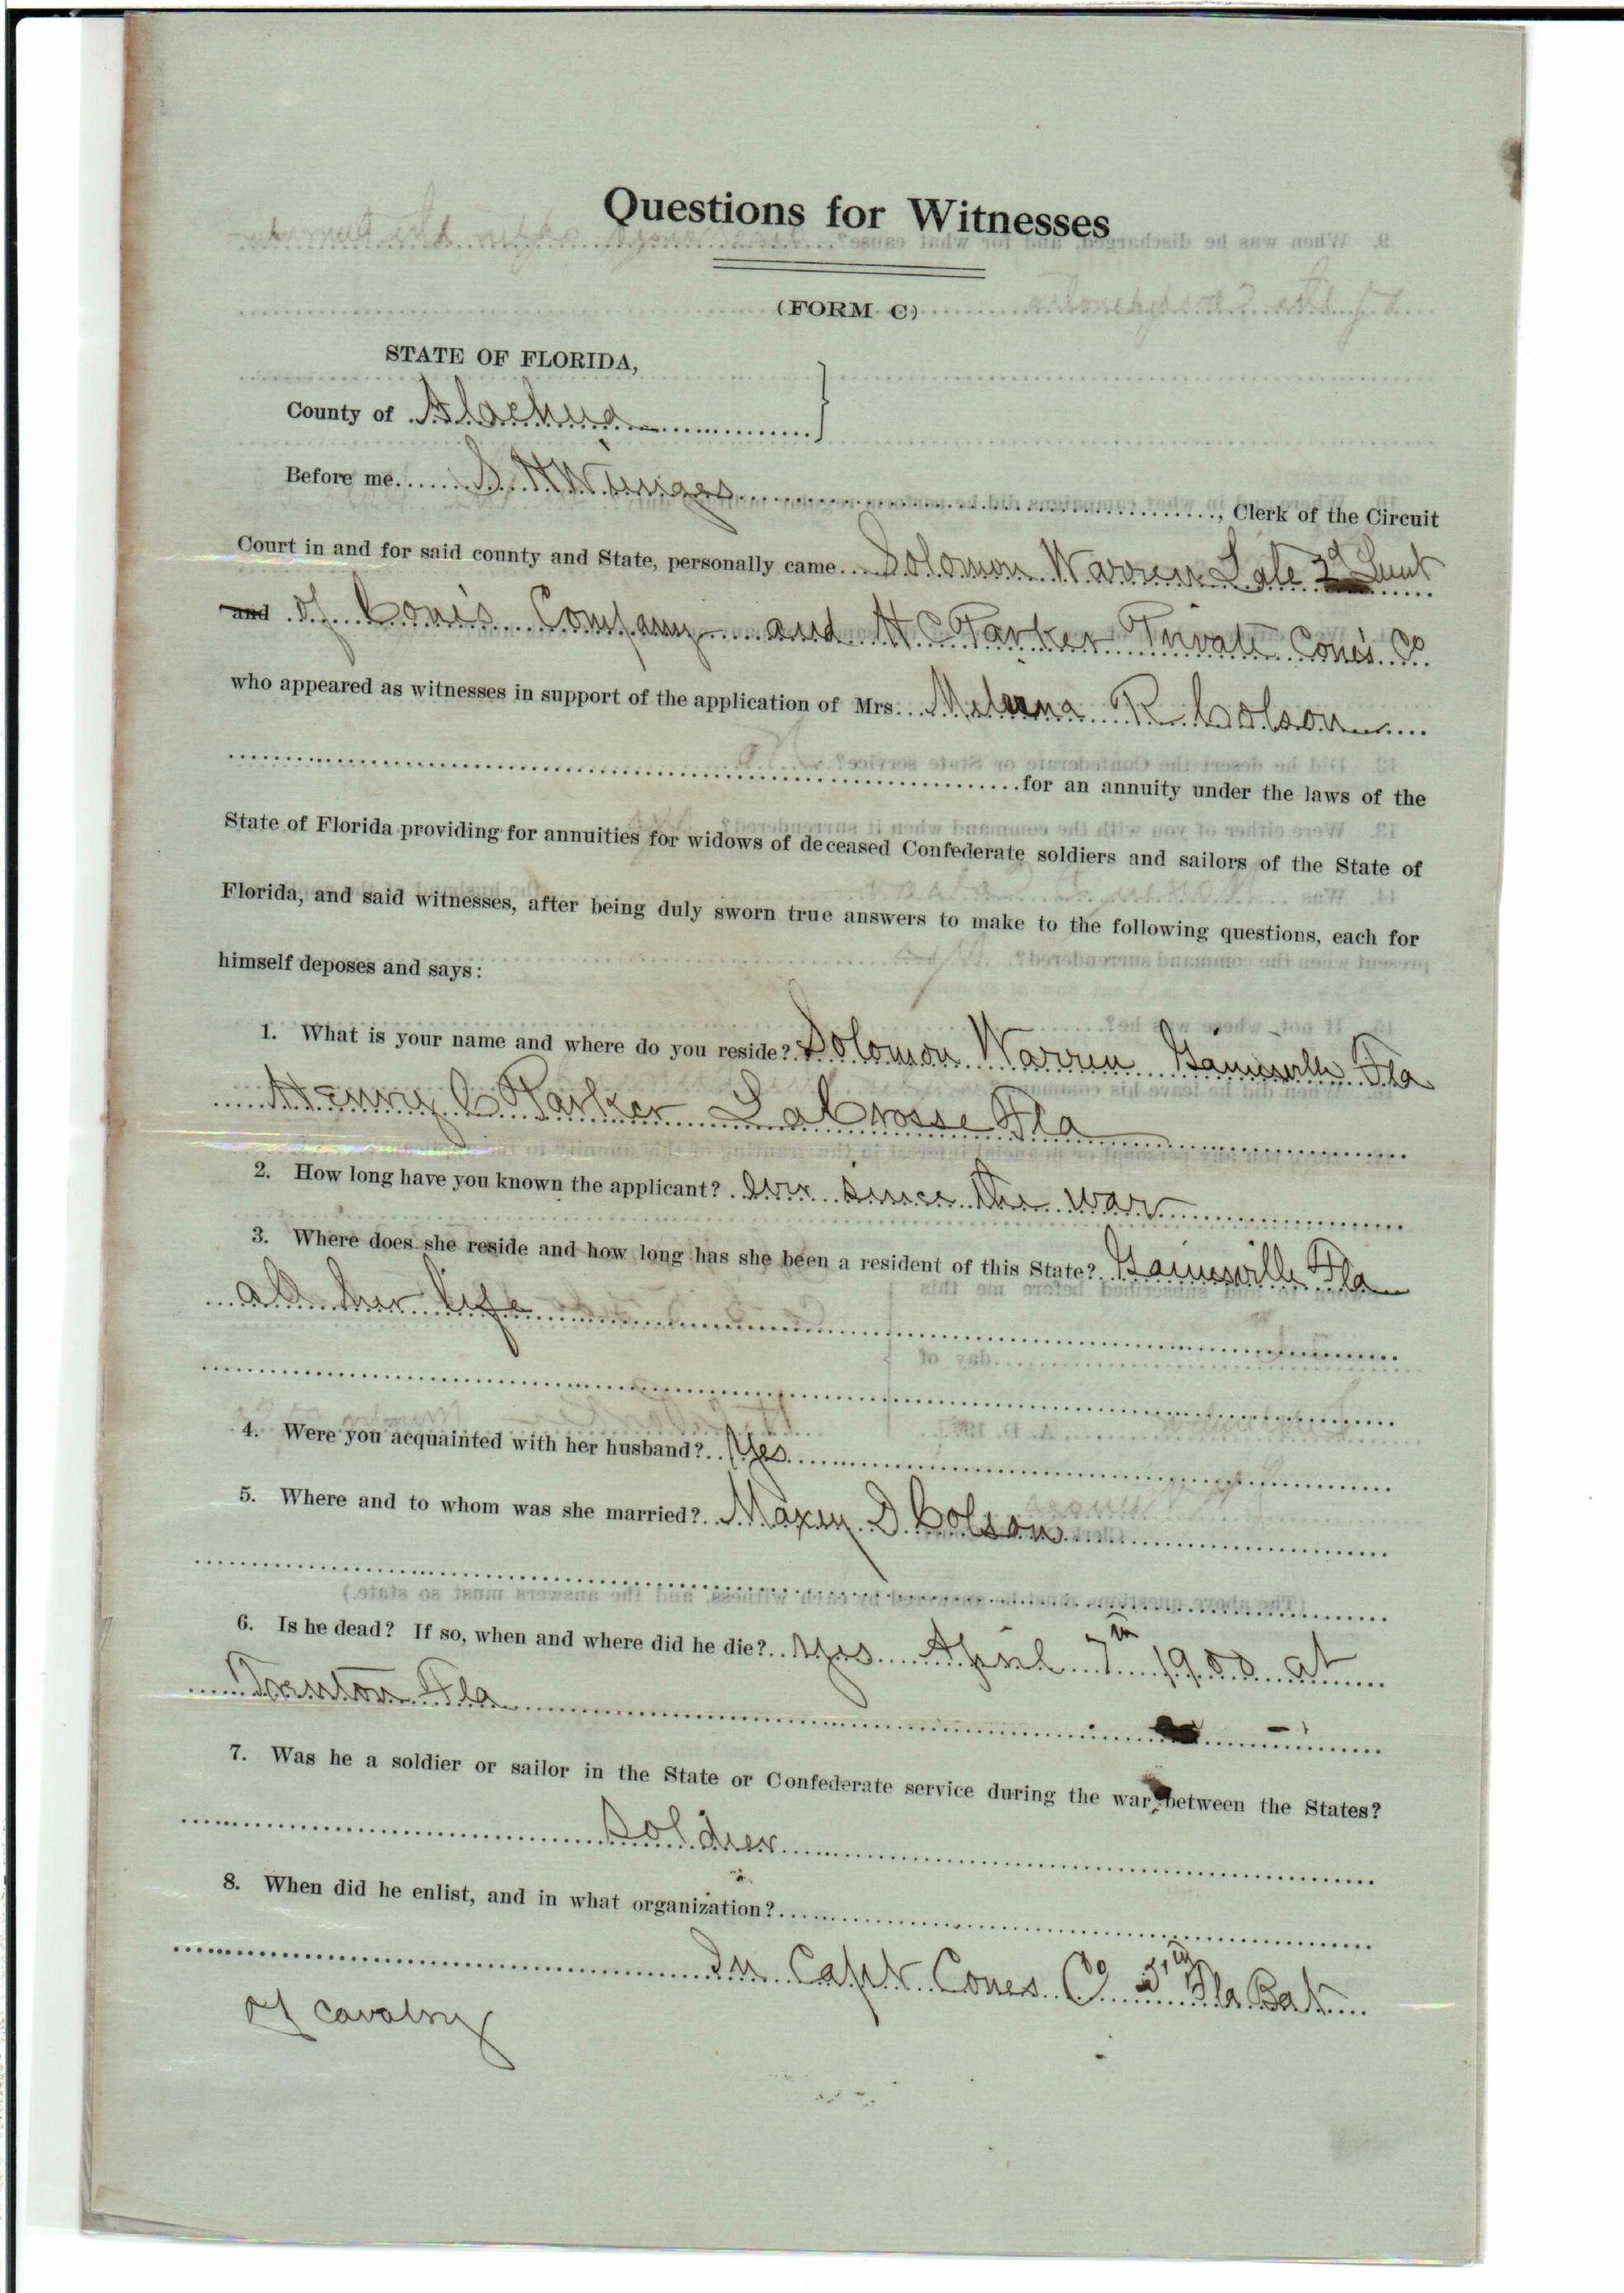 Questions for Witnesses
(FORM C)
STATE OF FLORIDA,
County of Alachua
Before me S. H. Wienges, Clerk of the Circuit
Court in and for said county and State, personally came Solomon Warren Late 2d Lieut
and of Cone's Company and H C Parker Private Cone's Co
who appeared as witnesses in support of the application of Mrs. R. Colson
for an annuity under the laws of the
State of Florida providing for annuities for widows of deceased Confederate soldiers and sailors of the State of
Florida, and said witnesses, after being duly sworn true answers to make to the following questions, each for
himself deposes and says:
1. What is your name and where do you reside? Solomon Warren Gainesville Fla
Henry C Parker LaCrosse Fla
2. How long have you known the applicant? Ever since the war
3. Where does she reside and how long has she been a resident of this State? Gainesville Fla
all her life
4. Were you acquainted with her husband? Yes
5. Where and to whom was she married? Maxey D Colson
6. Is he dead? If so, when and where did he die? Yes April 7th 1900 at
Trenton Fla
7. Was he a soldier or sailor in the State or Confederate service during the war between the States?
Soldier
8. When did he enlist, and in what organization?
In Capt Cones Co 5th Fla Bat
of cavalry